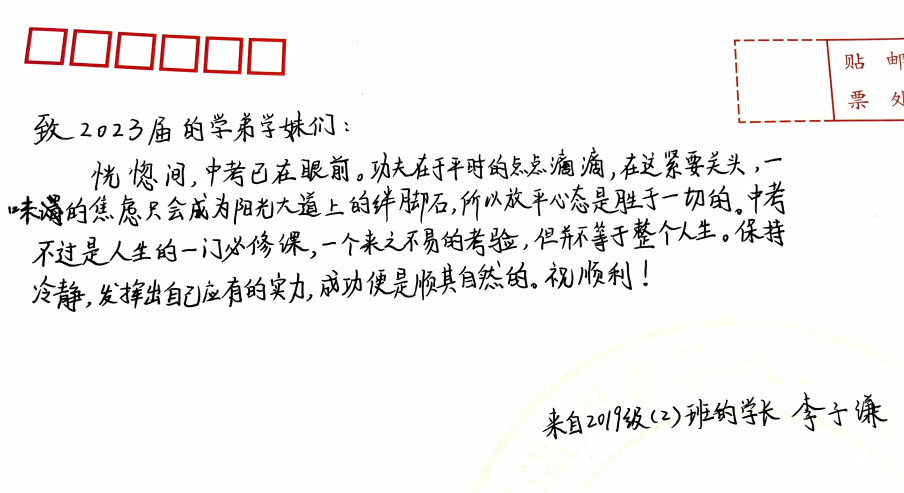 贴 邮
票 处
致2023届的学弟学妹们：
恍惚间，中考已在眼前。功夫在于平时的点点滴滴，在这紧要关头，一
味的焦虑只会成为阳光大道上的绊脚石，所以放平心态是胜于一切的。中考
不过是人生的一门必修课，一个来之不易的考验，但并不等于整个人生。保持
冷静，发挥出自己应有的实力，成功便是顺其自然的。祝顺利！
来自2019级(2)班的学长 李子谦